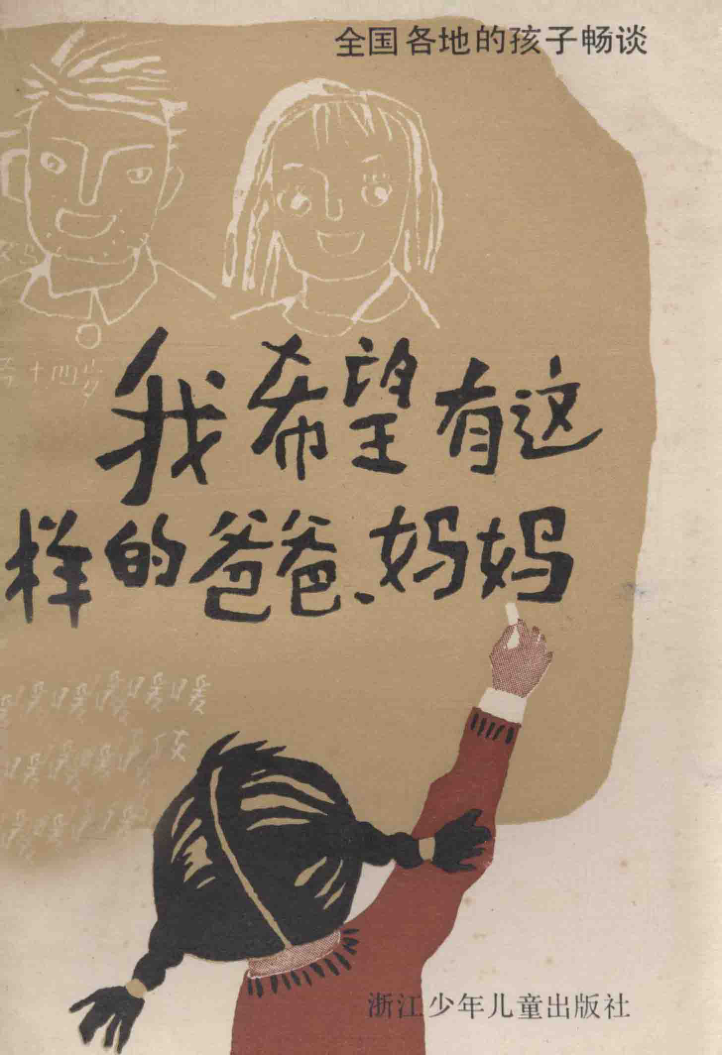 全国各地的孩子畅谈
十四岁
我希望有这
样的爸爸、妈妈
浙江少年儿童出版社